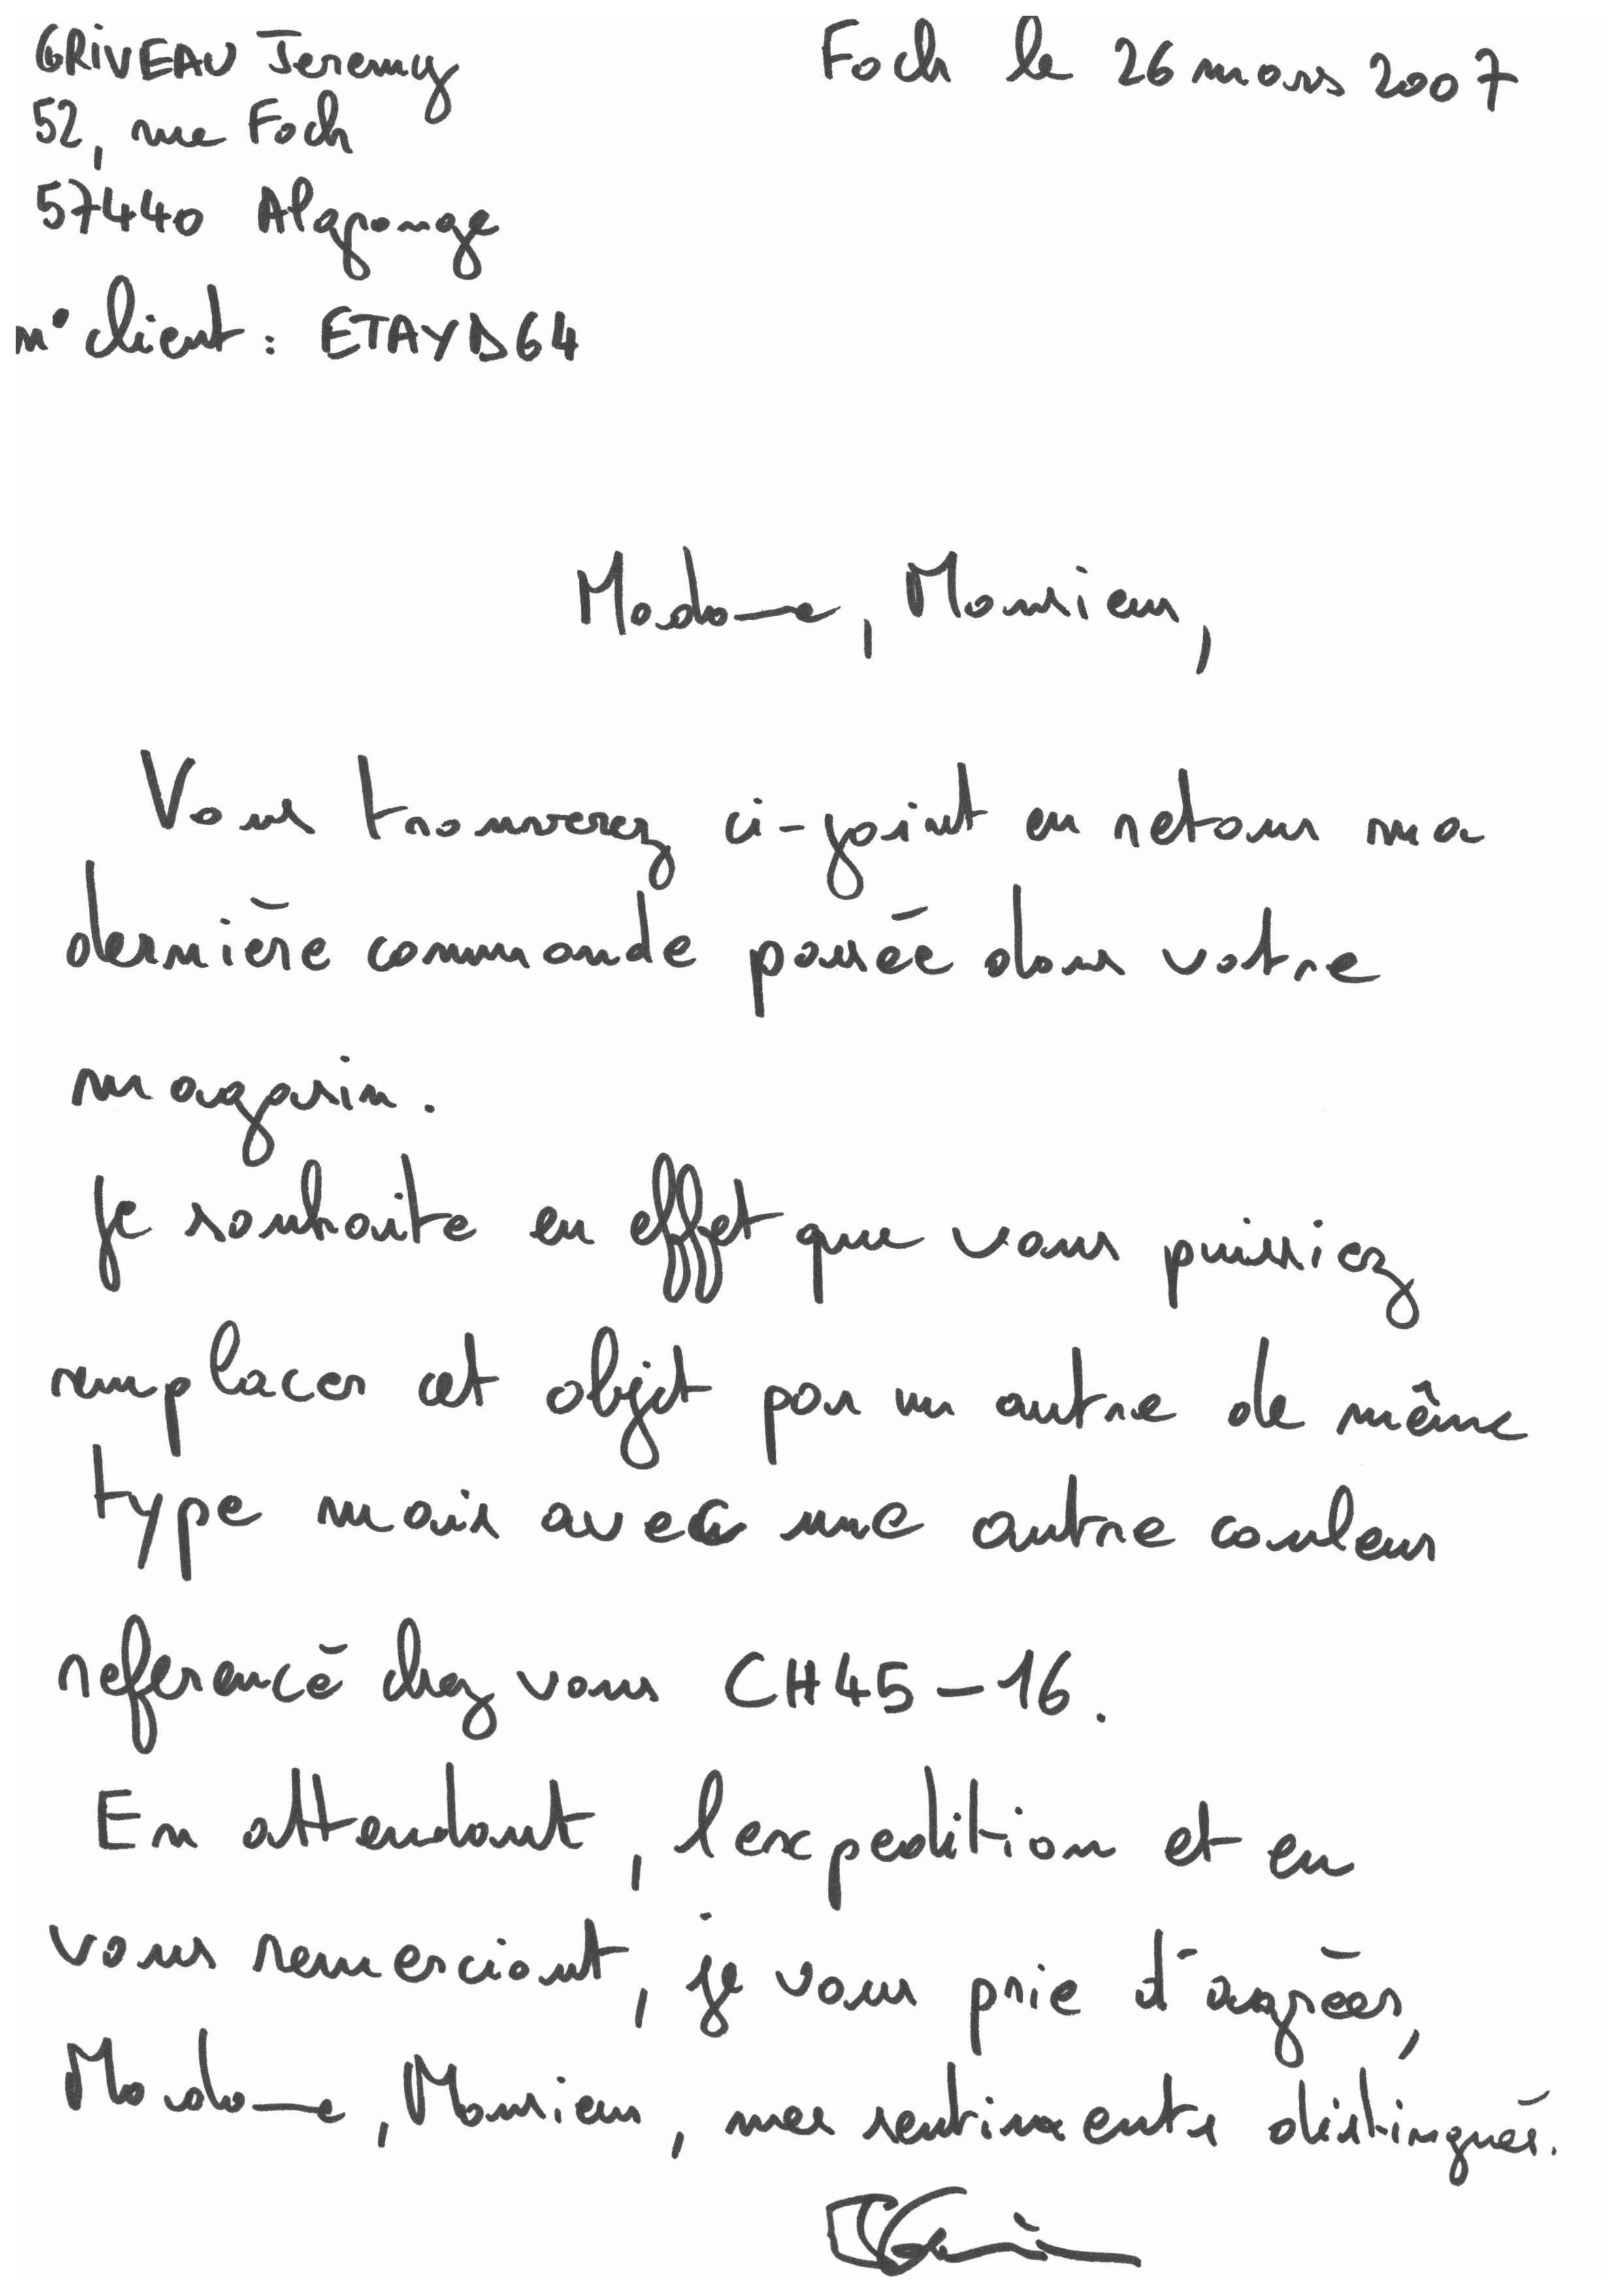 GRIVEAU Jeremy
Foch le 26 mars 2007
52, rue Foch
57440 Algrange
n° client : ETAYD64
Madame, Monsieur,
Vous trouverez ci-joint en retour ma
dernière commande passée dans votre
magasin.
Je souhaite en effet que vous puissiez
remplacer cet objet par un autre de même
type mais avec une autre couleur
referencé chez vous CH45-16.
En attendant, l'expedition et en
vous remerciant, je vous prie d'agréer,
Madame, Monsieur, mes sentiments distingués.